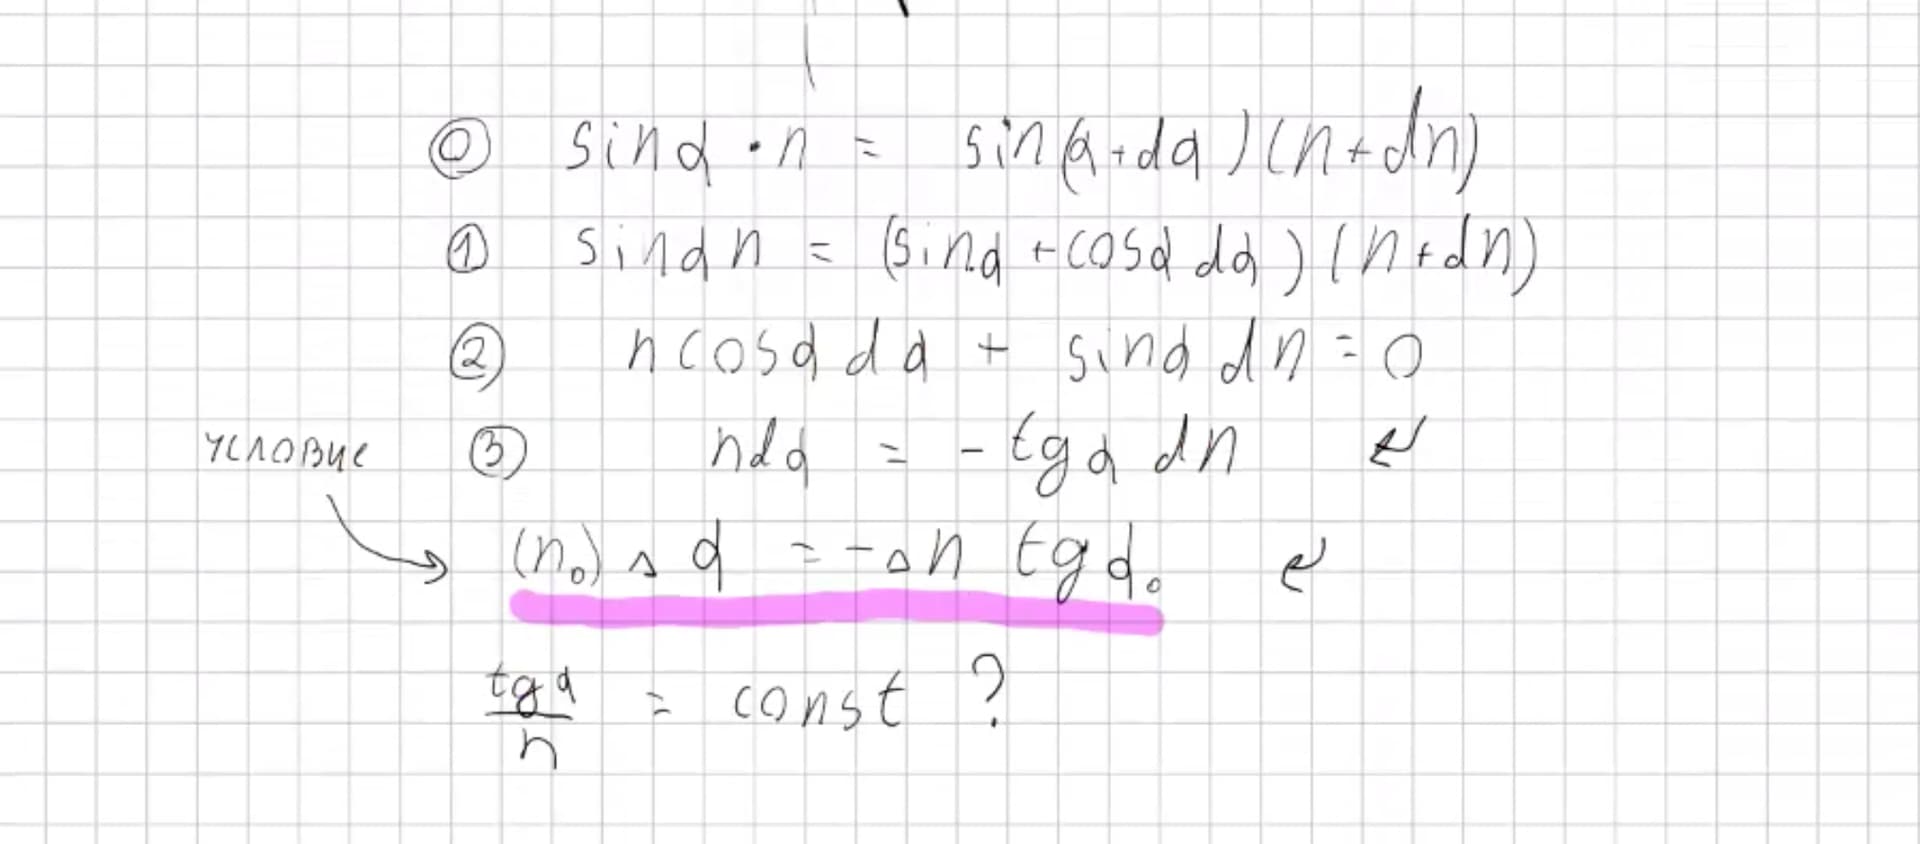 ⓪ sinα · n = sin(α+dα)(n+dn)
① sinα n = (sinα + cosα dα)(n+dn)
② n cosα dα + sinα dn = 0
условие ③ n dα = - tgα dn
(n₀) Δα = -Δn tgα₀
tgα/n = const ?